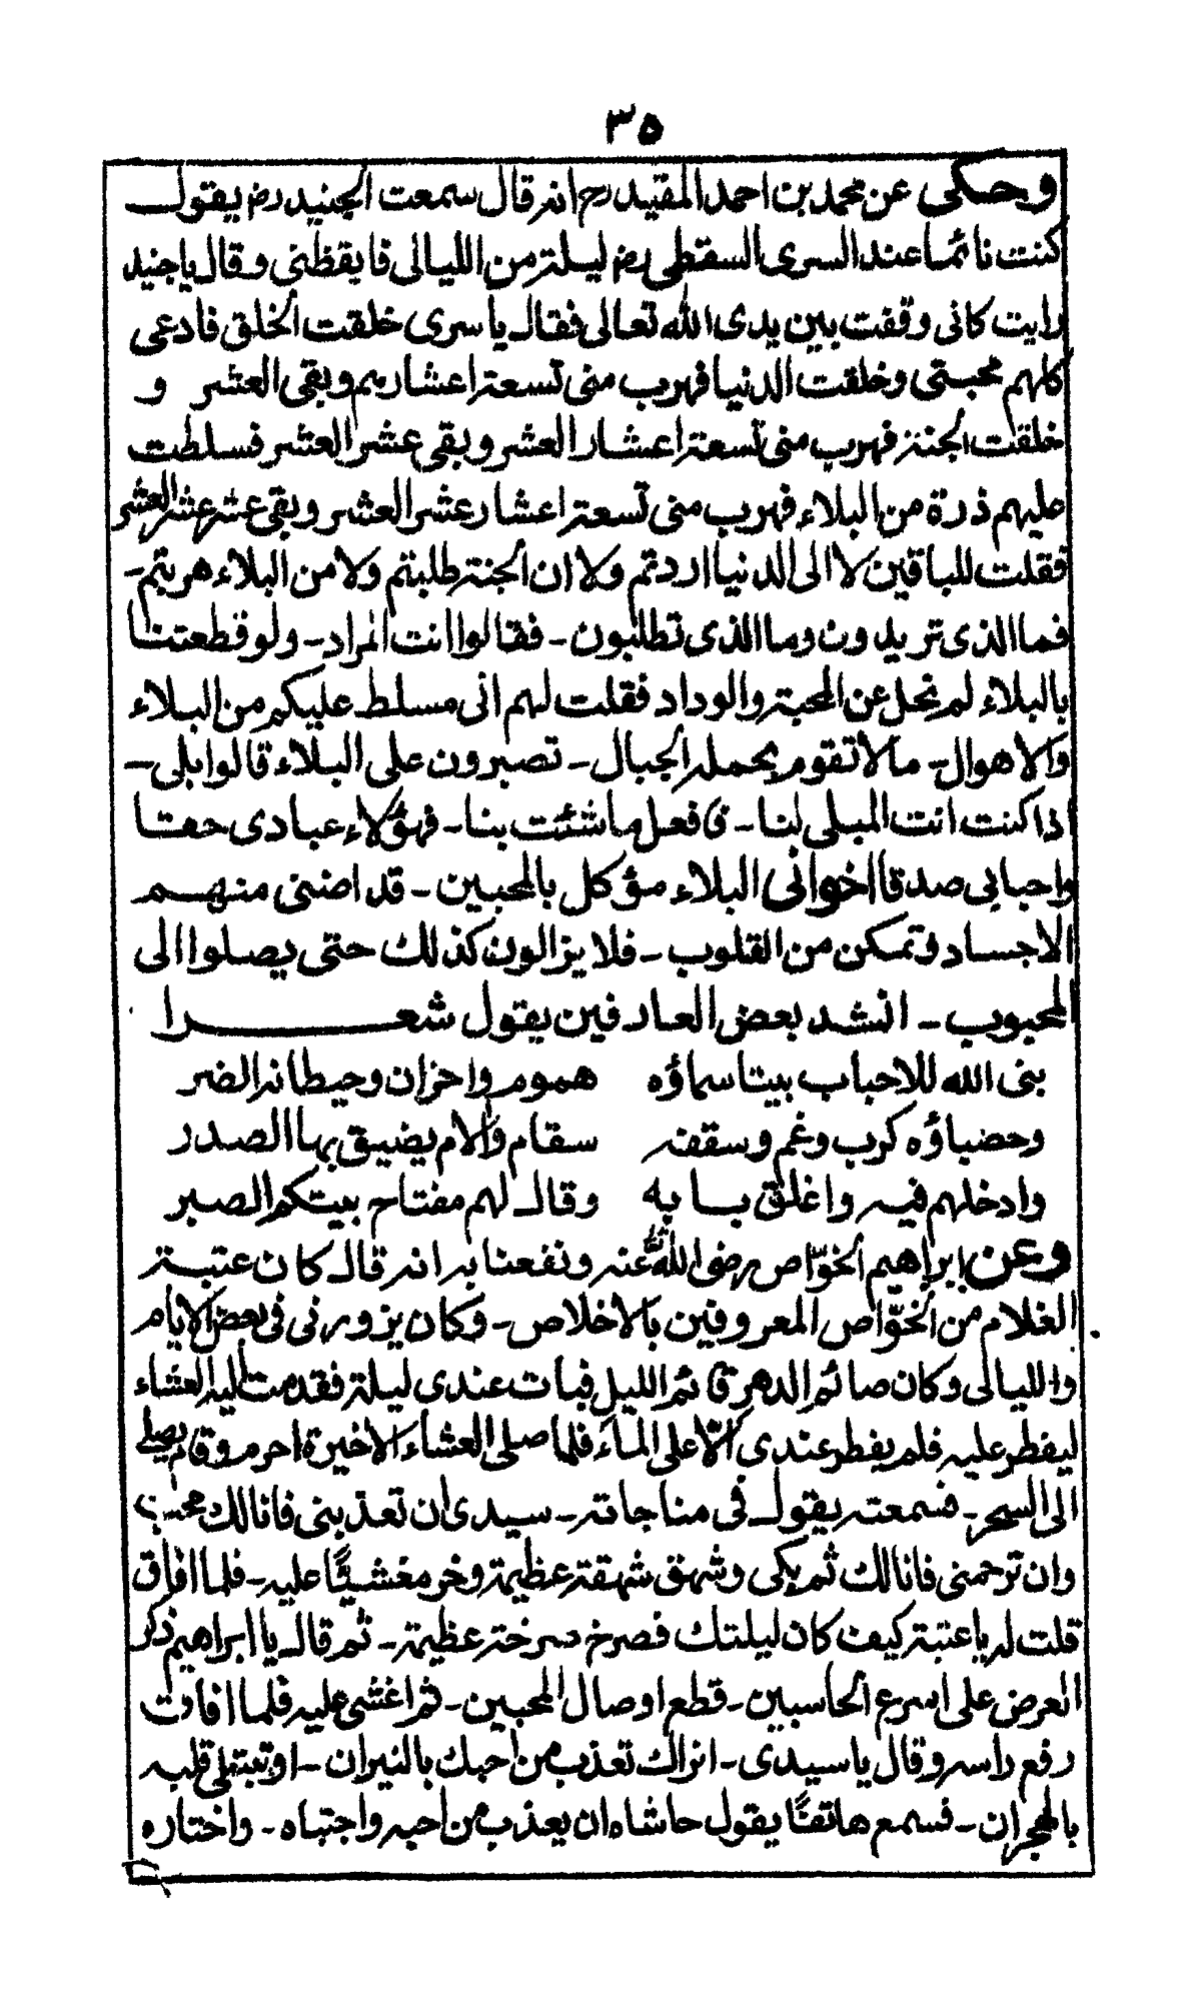 ٣٥
وحكى عن محمد بن احمد المفيد رح انه قال سمعت الجنيد رض يقول
كنت نائما عند السرى السقطى رض ليلة من الليالى فايقظنى وقال ياجنيد
رايت كانى وقفت بين يدى الله تعالى فقال ياسرى خلقت الخلق فادعى
كلهم محبتى وخلقت الدنيا فهرب منى تسعة اعشارهم وبقى العشر و
خلقت الجنة فهرب منى تسعة اعشار العشر وبقى عشر العشر فسلطت
عليهم ذرة من البلاء فهرب منى تسعة اعشار عشر العشر وبقى عشر عشر العشر
فقلت للباقين لا الى الدنيا اردتم ولا ان الجنة طلبتم ولا من البلاء هربتم-
فما الذى تريدون وما الذى تطلبون - فقالوا انت المراد - ولو قطعتنا
بالبلاء لم نحل عن المحبة والوداد فقلت لهم انى مسلط عليكم من البلاء
والاهوال - مالاتقوم بحمله الجبال - تصبرون على البلاء قالوا بلى -
اذا كنت انت المبلى لنا - فافعل ماشئت بنا - فهؤلاء عبادى حقا
واحبابى صدقا اخوانى البلاء مؤكل بالمحبين - قد اضنى منهم
الاجساد وتمكن من القلوب - فلا يزالون كذلك حتى يصلوا الى
المحبوب - انشد بعض العارفين يقول شعرا
بنى الله للاحباب بيتا سماؤه هموم واحزان وحيطانه الضر
وحضباؤه كرب وغم وسقفه سقام وآلام يضيق بها الصدر
وادخلهم فيه واغلق بابه وقال لهم مفتاح بيتكم الصبر
وعن ابراهيم الخوّاص رضى الله عنه ونفعنا به انه قال كان عتبة
الغلام من الخوّاص المعروفين بالاخلاص - وكان يزورنى فى بعض الايام
والليالى وكان صائم الدهر قائم الليل فبات عندى ليلة فقدمت اليه العشاء
ليفطر عليه فلم يفطر عندى الّا على الماء فلما صلى العشاء الاخيرة احرم وقام يصلى
الى السحر - فسمعته يقول فى مناجاته - سيدى ان تعذبنى فانا لك محب
وان ترحمنى فانا لك ثم بكى وشهق شهقة عظيمة وخر مغشيًا عليه - فلما افاق
قلت له ياعتبة كيف كان ليلتك فصرخ صرخة عظيمة - ثم قال يا ابراهيم ذكر
العرض على اسرع الحاسبين - قطع اوصال المحبين - ثم اغشى عليه فلما افاق
رفع راسه وقال ياسيدى - اتراك تعذب من احبك بالنيران - او تبتلى قلبه
بالهجران - فسمع هاتفًا يقول حاشاه ان يعذب من احبه واجتباه - واختاره